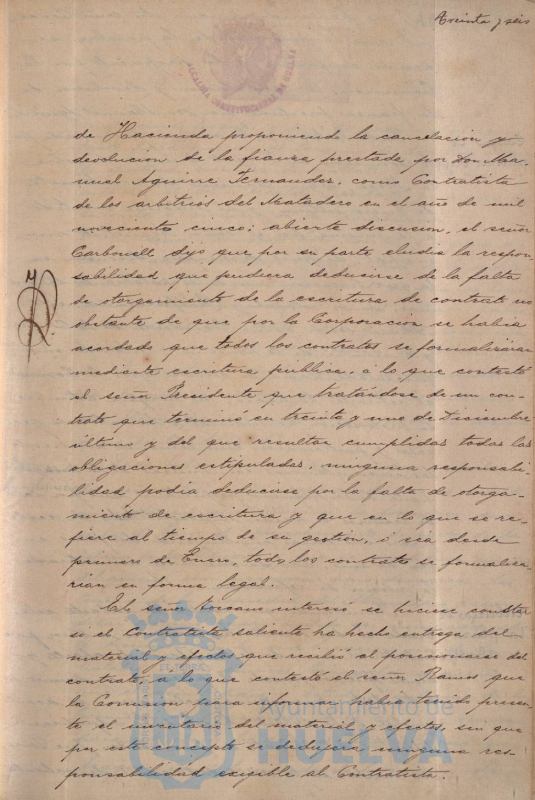 Treinta y seis
ALCALDIA CONSTITUCIONAL DE HUELVA
de Hacienda proponiendo la cancelacion y
devolucion de la fianza prestada por Don Ma-
nuel Aguirre Fernandez, como Contratista
de los arbitrios del Matadero en el año de mil
novecientos cinco; abierta discusion, el señor
Carbonell dijo que por su parte eludia la respon-
sabilidad que pudiera deducirse de la falta
de otorgamiento de la escritura de contrato no
obstante de que por la Corporacion se habia
acordado que todos los contratos se formalizaran
mediante escritura publica, a lo que contestó
el señor Presidente que tratándose de un con-
trato que terminó en treinta y uno de Diciembre
último y del que resultan cumplidas todas las
obligaciones estipuladas, ninguna responsabi-
lidad podia deducirse por la falta de otorga-
miento de escritura y que en lo que se re-
fiere al tiempo de su gestión, ó sea desde
primero de Enero, todos los contratos se formaliza-
rian en forma legal.
El señor Toscano interesó se hiciese constar
si el Contratista saliente ha hecho entrega del
material y efectos que recibió al posesionarse del
contrato, a lo que contestó el señor Ramos que
la Comision para informar habia tenido presen-
te el inventario del material y efectos, sin que
por este concepto se dedujera ninguna res-
ponsabilidad exigible al Contratista.
Ayuntamiento de
HUELVA